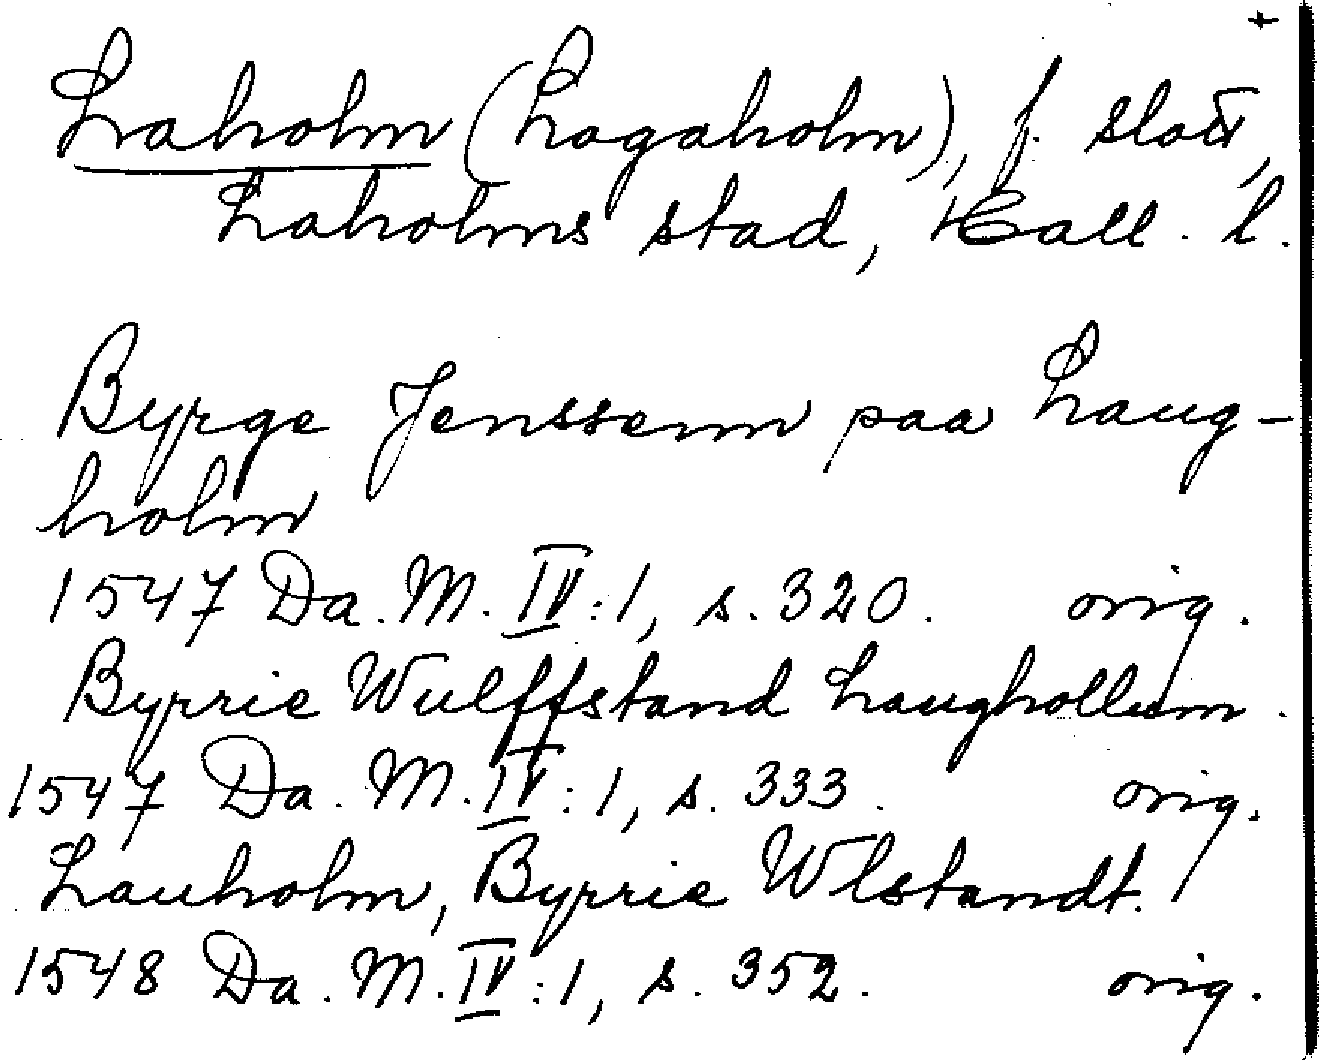 +
Laholm (Lagaholm), f. slott,
Laholms stad, Hall. l.
Byrge Jenssenn paa Laug-
holm
1547 Da. M. IV:1, s. 320. orig.
Byrrie Wulffstand Laughollum.
1547 Da. M. IV:1, s. 333. orig.
Lauholm, Byrrie Wlstandt.
1548 Da. M. IV:1, s. 352. orig.